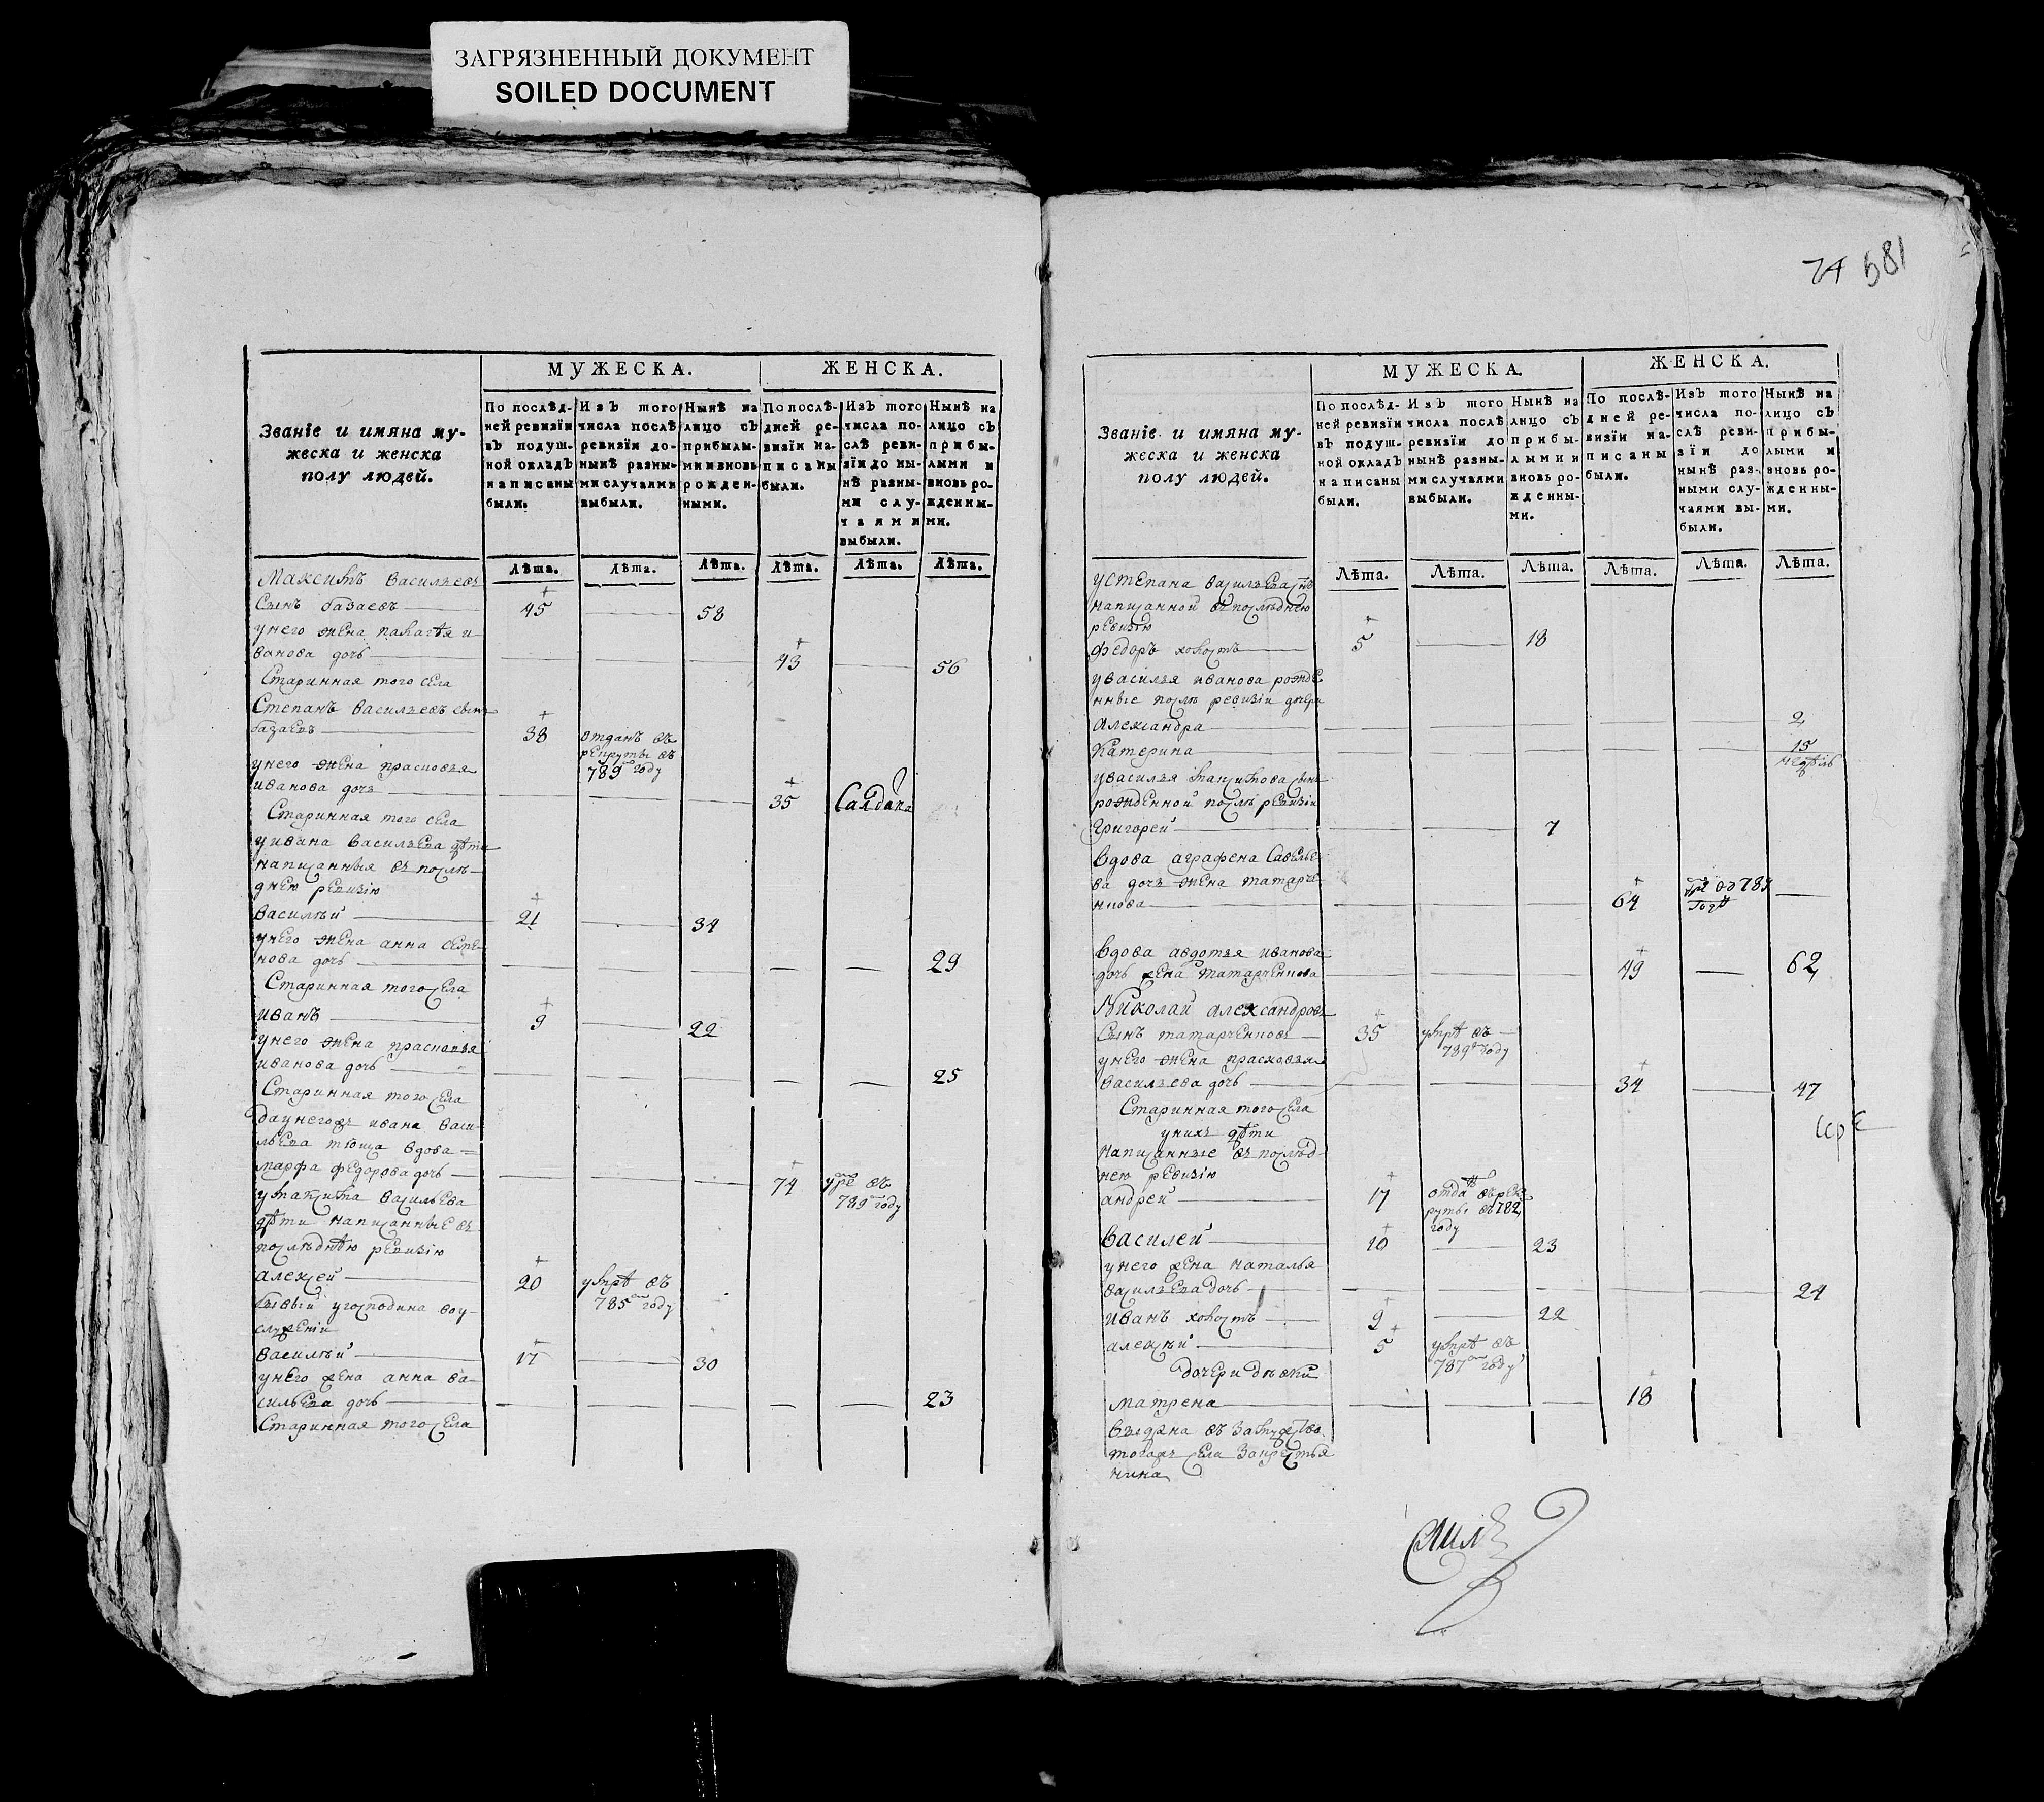 ЗАГРЯЗНЕННЫЙ ДОКУМЕНТ
SOILED DOCUMENT
Званіе и имяна му-
жеска и женска
полу людей.
МУЖЕСКА.
ЖЕНСКА.
По послѣд-
ней ревизіи
въ подуш-
ной окладъ
написаны
были.
Изъ того
числа послѣ
ревизіи до-
нынѣ разны-
ми случаями
выбыли.
Нынѣ на
лицо съ
прибылы-
ми и вновь
рожден-
ными.
По послѣ-
дней ре-
визіи на-
писаны
были.
Изъ того
числа по-
слѣ реви-
зіи до ны-
нѣ разны-
ми слу-
чаями
выбыли.
Нынѣ на
лицо съ
прибы-
лыми и
вновь ро-
жденны-
ми.
Лѣта. Лѣта. Лѣта. Лѣта. Лѣта. Лѣта.
Максимъ Васильевъ
сынъ базаевъ 45 58
у него жена палагѣя и
ванова дочь 43 56
Старинная того села
Степанъ Васильевъ сынъ
базаевъ 38 отданъ въ
рекруты въ
789 году
у него жена прасковья
иванова дочь 35 Салдака
Старинная того села
у ивана васильева дѣти
написанныя въ послѣ-
днею ревизію
василѣй 21 34
у него жена анна семе-
нова дочь 29
Старинная того села
иванъ 9 22
у него жена прасковья
иванова дочь 25
Старинная того села
да у негожъ ивана васи-
льева тюща вдова
марфа федорова дочь 74 умре въ
789 году
у максима васильева
дѣти написанные въ
послѣднѣю ревизію
алексей 20 умрѣ въ
785 году
бывый у господина во у-
служеніи
василѣй 17 30
у него жена анна ва-
сильева дочь 23
Старинная того села
74 581
Званіе и имяна му-
жеска и женска
полу людей.
МУЖЕСКА.
ЖЕНСКА.
По послѣд-
ней ревизіи
въ подуш-
ной окладъ
написаны
были.
Изъ того
числа послѣ
ревизіи до
нынѣ разны-
ми случаями
выбыли.
Нынѣ на
лицо съ
прибы-
лыми и
вновь ро-
жденны-
ми.
По послѣ-
дней ре-
визіи на-
писаны
были.
Изъ того
числа по-
слѣ реви-
зіи до
нынѣ раз-
ными слу-
чаями вы-
были.
Нынѣ на
лицо съ
прибы-
лыми и
вновь ро-
жденны-
ми.
Лѣта. Лѣта. Лѣта. Лѣта. Лѣта. Лѣта.
у степана васильева сынъ
написанной въ послѣднею
ревизію
федоръ холостъ 5 18
у василья иванова рожде
нные послѣ ревизіи дочери
александра 2
катерина 15
недѣль
у василья максимова сынъ
рожденной послѣ ревизіи
григорей 7
вдова аграфена савелье
ва дочь жена татарче-
нкова 64 789
году
вдова авдотья иванова
дочь жена татарченкова 49 62
Николай александровъ
сынъ татарченковъ 35 умрѣ въ
789 году
у него жена прасковья
васильева дочь 34 47
Старинная того села
у нихъ дѣти
написанные въ послѣд-
нею ревизію
андрей 17 отданъ въ рек
руты въ 782
году
василей 10 23
у него жена наталья
васильева дочь 24
иванъ холостъ 9 22
алексѣй 5 умрѣ въ
787 году
дочери дѣвки
матрена 18
выдана въ замужство
тогожъ села за крестья
нина